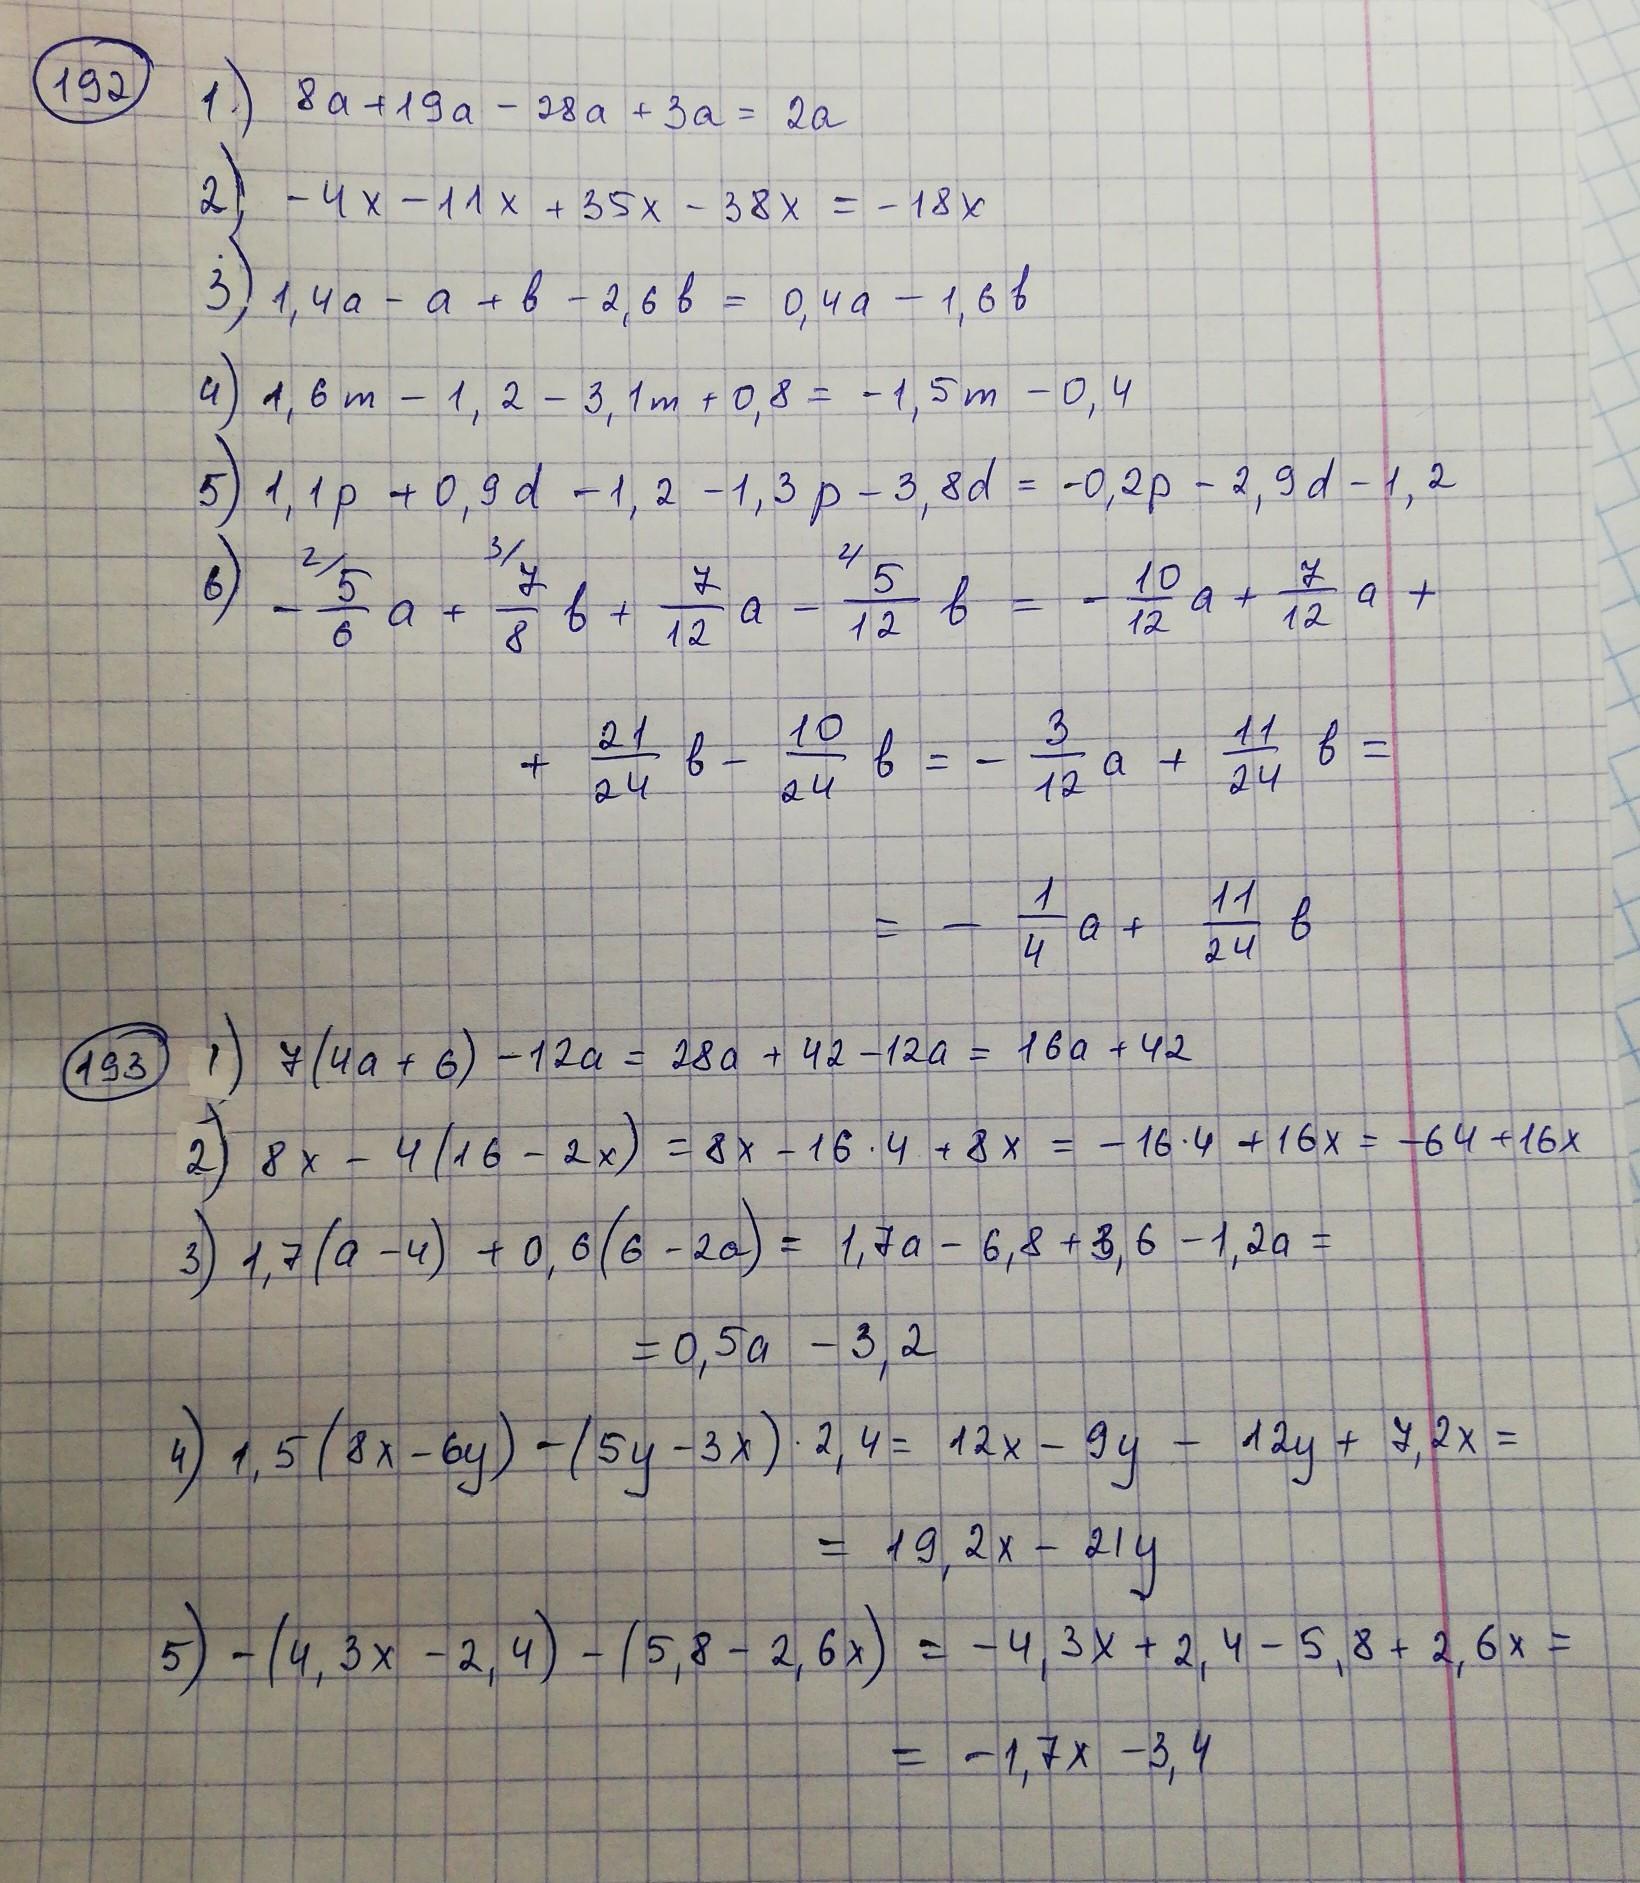 192 1) 8a + 19a - 28a + 3a = 2a
2) -4x - 11x + 35x - 38x = -18x
3) 1,4a - a + b - 2,6b = 0,4a - 1,6b
4) 1,6m - 1,2 - 3,1m + 0,8 = -1,5m - 0,4
5) 1,1p + 0,9d - 1,2 - 1,3p - 3,8d = -0,2p - 2,9d - 1,2
6) - 2/ 5/6 a + 3/ 7/8 b + 7/12 a - 2/ 5/12 b = - 10/12 a + 7/12 a +
+ 21/24 b - 10/24 b = - 3/12 a + 11/24 b =
= - 1/4 a + 11/24 b
193 1) 7(4a + 6) - 12a = 28a + 42 - 12a = 16a + 42
2) 8x - 4(16 - 2x) = 8x - 16·4 + 8x = -16·4 + 16x = -64 + 16x
3) 1,7(a - 4) + 0,6(6 - 2a) = 1,7a - 6,8 + 3,6 - 1,2a =
= 0,5a - 3,2
4) 1,5(8x - 6y) - (5y - 3x)·2,4 = 12x - 9y - 12y + 7,2x =
= 19,2x - 21y
5) -(4,3x - 2,4) - (5,8 - 2,6x) = -4,3x + 2,4 - 5,8 + 2,6x =
= -1,7x - 3,4